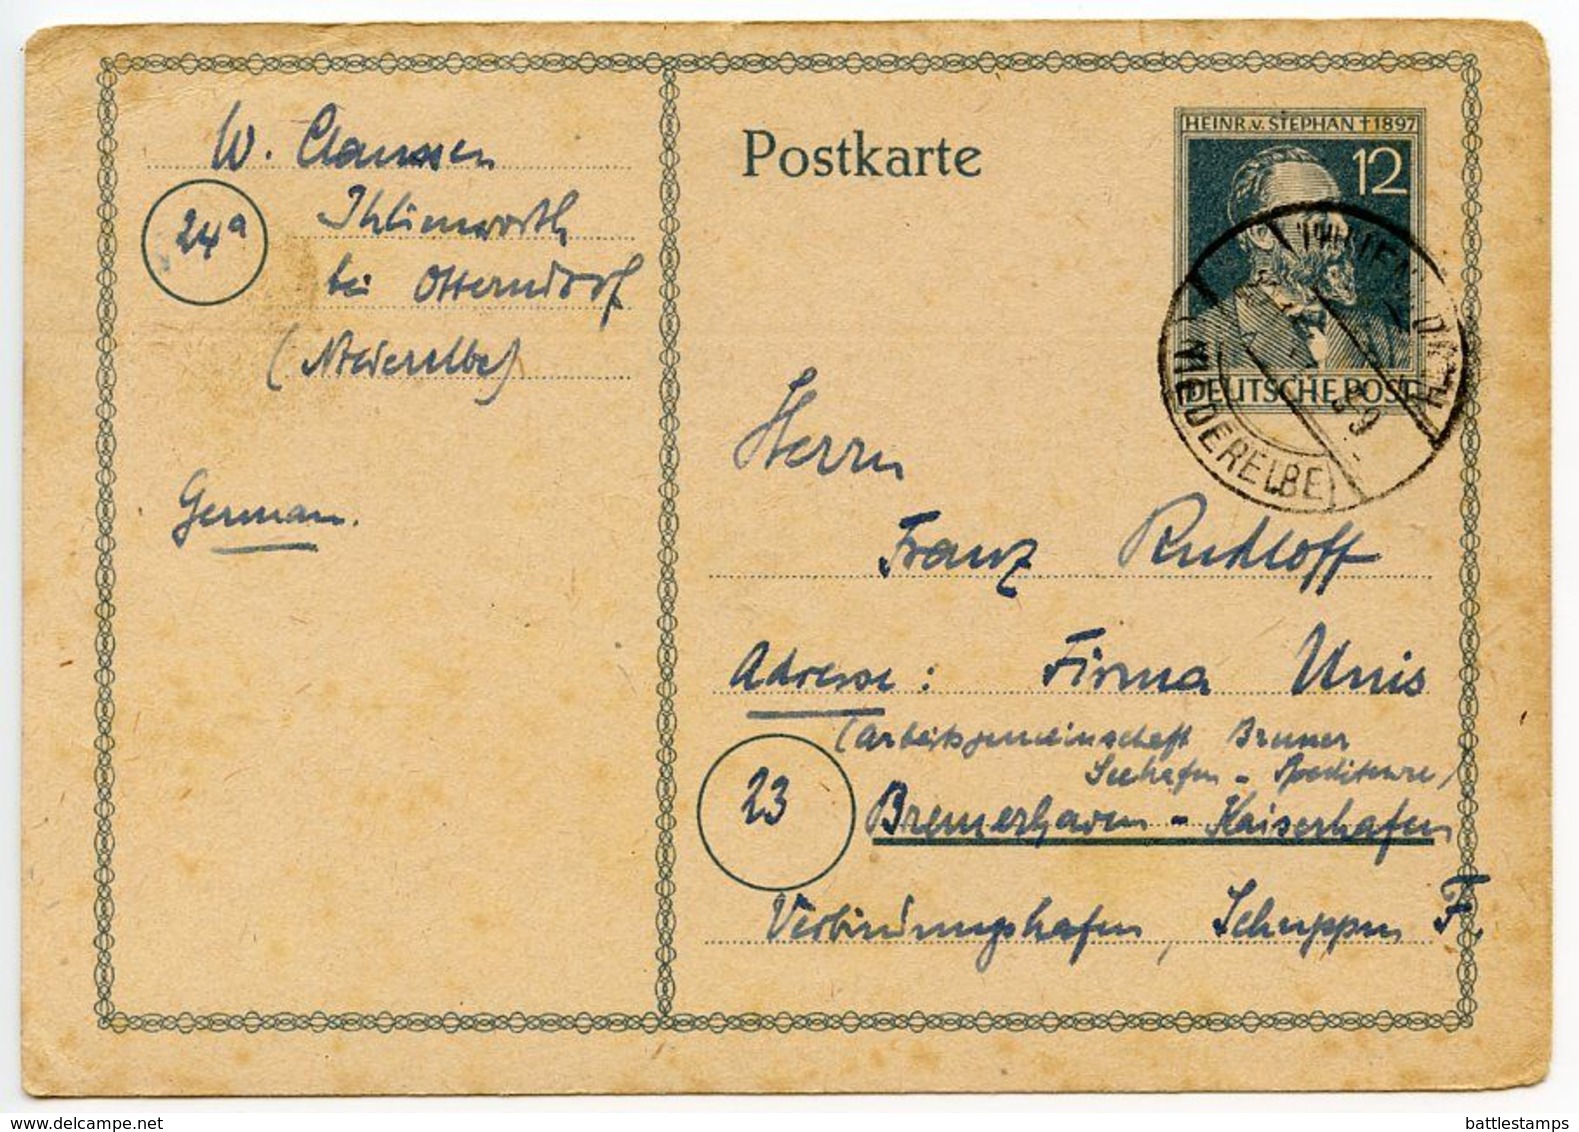 W. Claussen
24a
Ihlienworth
bei Otterndorf
(Niederelbe)
German.
Postkarte
HEINR. v. STEPHAN † 1897
12
DEUTSCHE POST
NIEDERELBE
Herrn
Franz Rudloff
Adresse: Firma Unis
(Arbeitsgemeinschaft Bremer
Seehafen - Spediteure)
23
Bremerhaven - Kaiserhafen
Verbindungshafen, Schuppen F.
www.delcampe.net
battlestamps